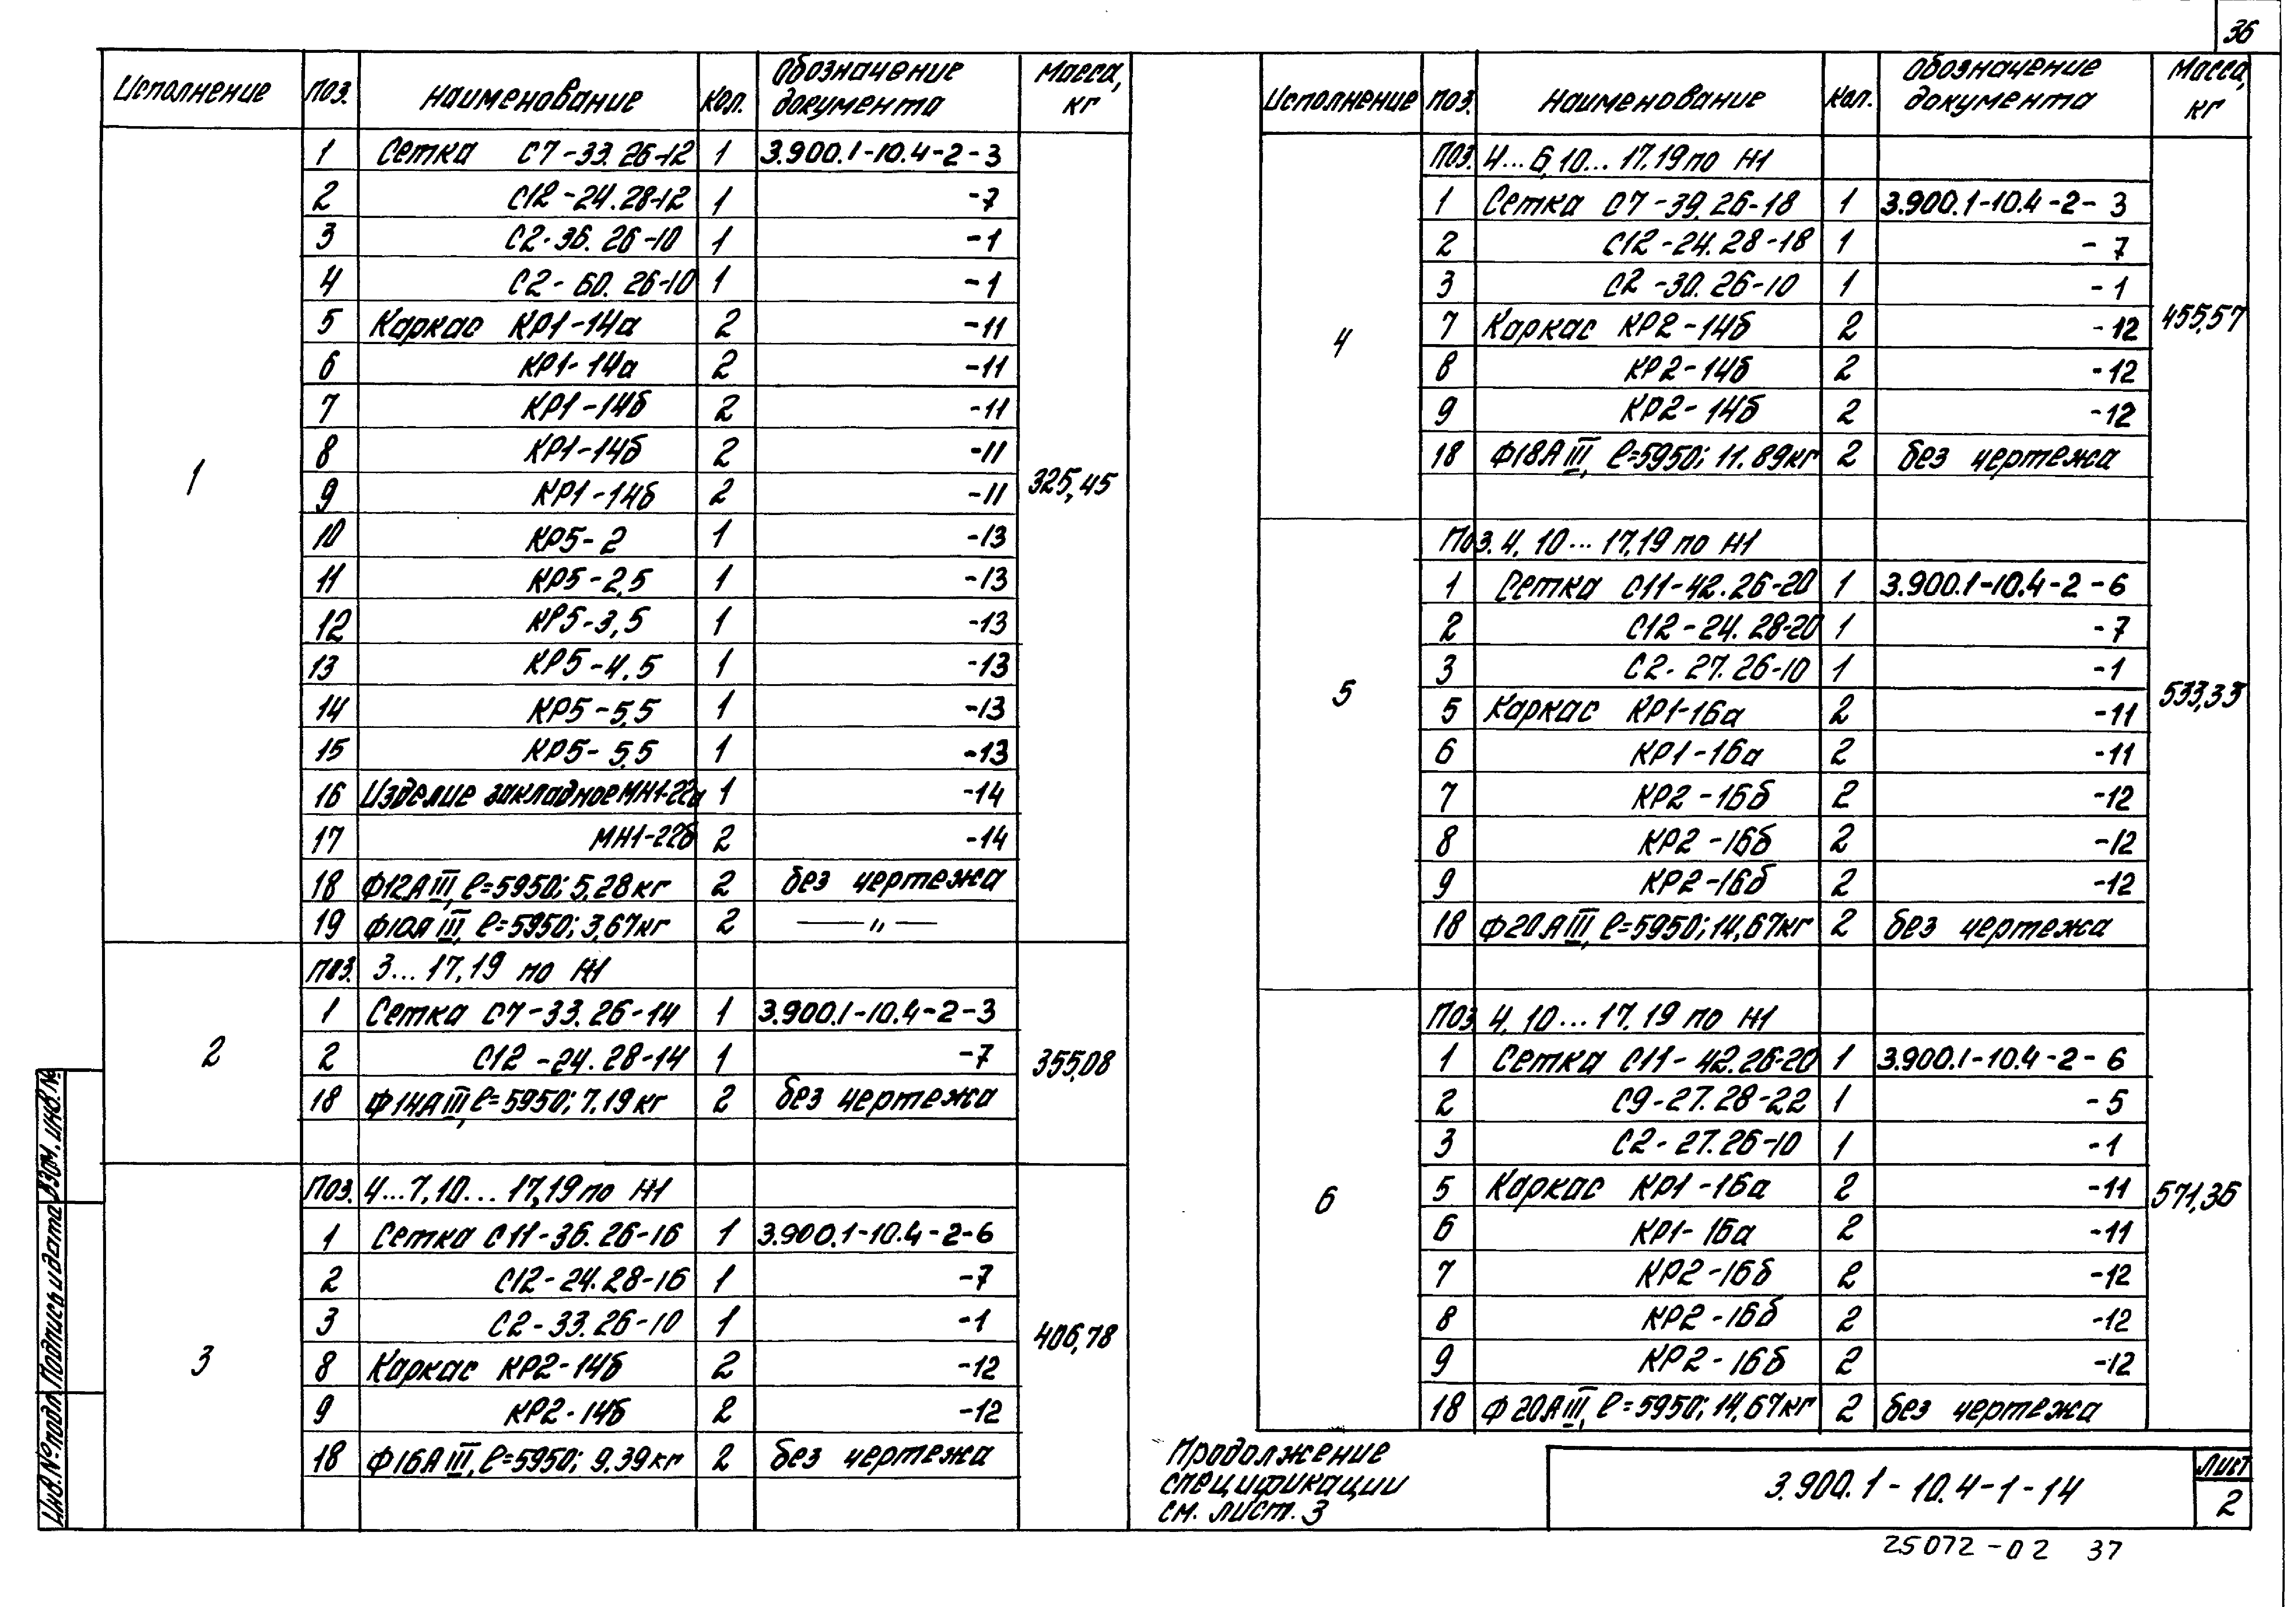 36
Исполнение Поз. Наименование Кол. Обозначение документа Масса, кг
1 325,45
1 Сетка С7-33.26-12 1 3.900.1-10.4-2-3
2 С12-24.28-12 1 -7
3 С2-36.26-10 1 -1
4 С2-60.26-10 1 -1
5 Каркас КР1-14а 2 -11
6 КР1-14а 2 -11
7 КР1-14б 2 -11
8 КР1-14б 2 -11
9 КР1-14б 2 -11
10 КР5-2 1 -13
11 КР5-2,5 1 -13
12 КР5-3,5 1 -13
13 КР5-4,5 1 -13
14 КР5-5,5 1 -13
15 КР5-5,5 1 -13
16 Изделие закладное МН1-22а 1 -14
17 МН1-22б 2 -14
18 Ф12АIII, ℓ=5950; 5,28кг 2 без чертежа
19 Ф10АIII, ℓ=5950; 3,67кг 2 — „ —
2 355,08
поз. 3...17,19 по Н1
1 Сетка С7-33.26-14 1 3.900.1-10.4-2-3
2 С12-24.28-14 1 -7
18 Ф14АIII, ℓ=5950; 7,19кг 2 без чертежа
3 406,78
Поз. 4...7,10...17,19 по Н1
1 Сетка С11-36.26-16 1 3.900.1-10.4-2-6
2 С12-24.28-16 1 -7
3 С2-33.26-10 1 -1
8 Каркас КР2-14б 2 -12
9 КР2-14б 2 -12
18 Ф16АIII, ℓ=5950; 9,39кг 2 без чертежа
Исполнение Поз. Наименование Кол. Обозначение документа Масса, кг
4 455,57
Поз. 4...6,10...17,19 по Н1
1 Сетка С7-39.26-18 1 3.900.1-10.4-2-3
2 С12-24.28-18 1 -7
3 С2-30.26-10 1 -1
7 Каркас КР2-14б 2 -12
8 КР2-14б 2 -12
9 КР2-14б 2 -12
18 Ф18АIII, ℓ=5950; 11.89кг 2 без чертежа
5 533,33
Поз. 4, 10...17,19 по Н1
1 Сетка С11-42.26-20 1 3.900.1-10.4-2-6
2 С12-24.28-20 1 -7
3 С2-27.26-10 1 -1
5 Каркас КР1-16а 2 -11
6 КР1-16а 2 -11
7 КР2-16б 2 -12
8 КР2-16б 2 -12
9 КР2-16б 2 -12
18 Ф20АIII, ℓ=5950; 14,67кг 2 без чертежа
6 571,36
Поз. 4, 10...17,19 по Н1
1 Сетка С11-42.26-20 1 3.900.1-10.4-2-6
2 С9-27.28-22 1 -5
3 С2-27.26-10 1 -1
5 Каркас КР1-16а 2 -11
6 КР1-16а 2 -11
7 КР2-16б 2 -12
8 КР2-16б 2 -12
9 КР2-16б 2 -12
18 Ф20АIII, ℓ=5950; 14,67кг 2 без чертежа
Продолжение
спецификации
см. лист. 3
3.900.1-10.4-1-14
Лист
2
25072-02 37
Инв.№подл. Подпись и дата Взам. инв.№